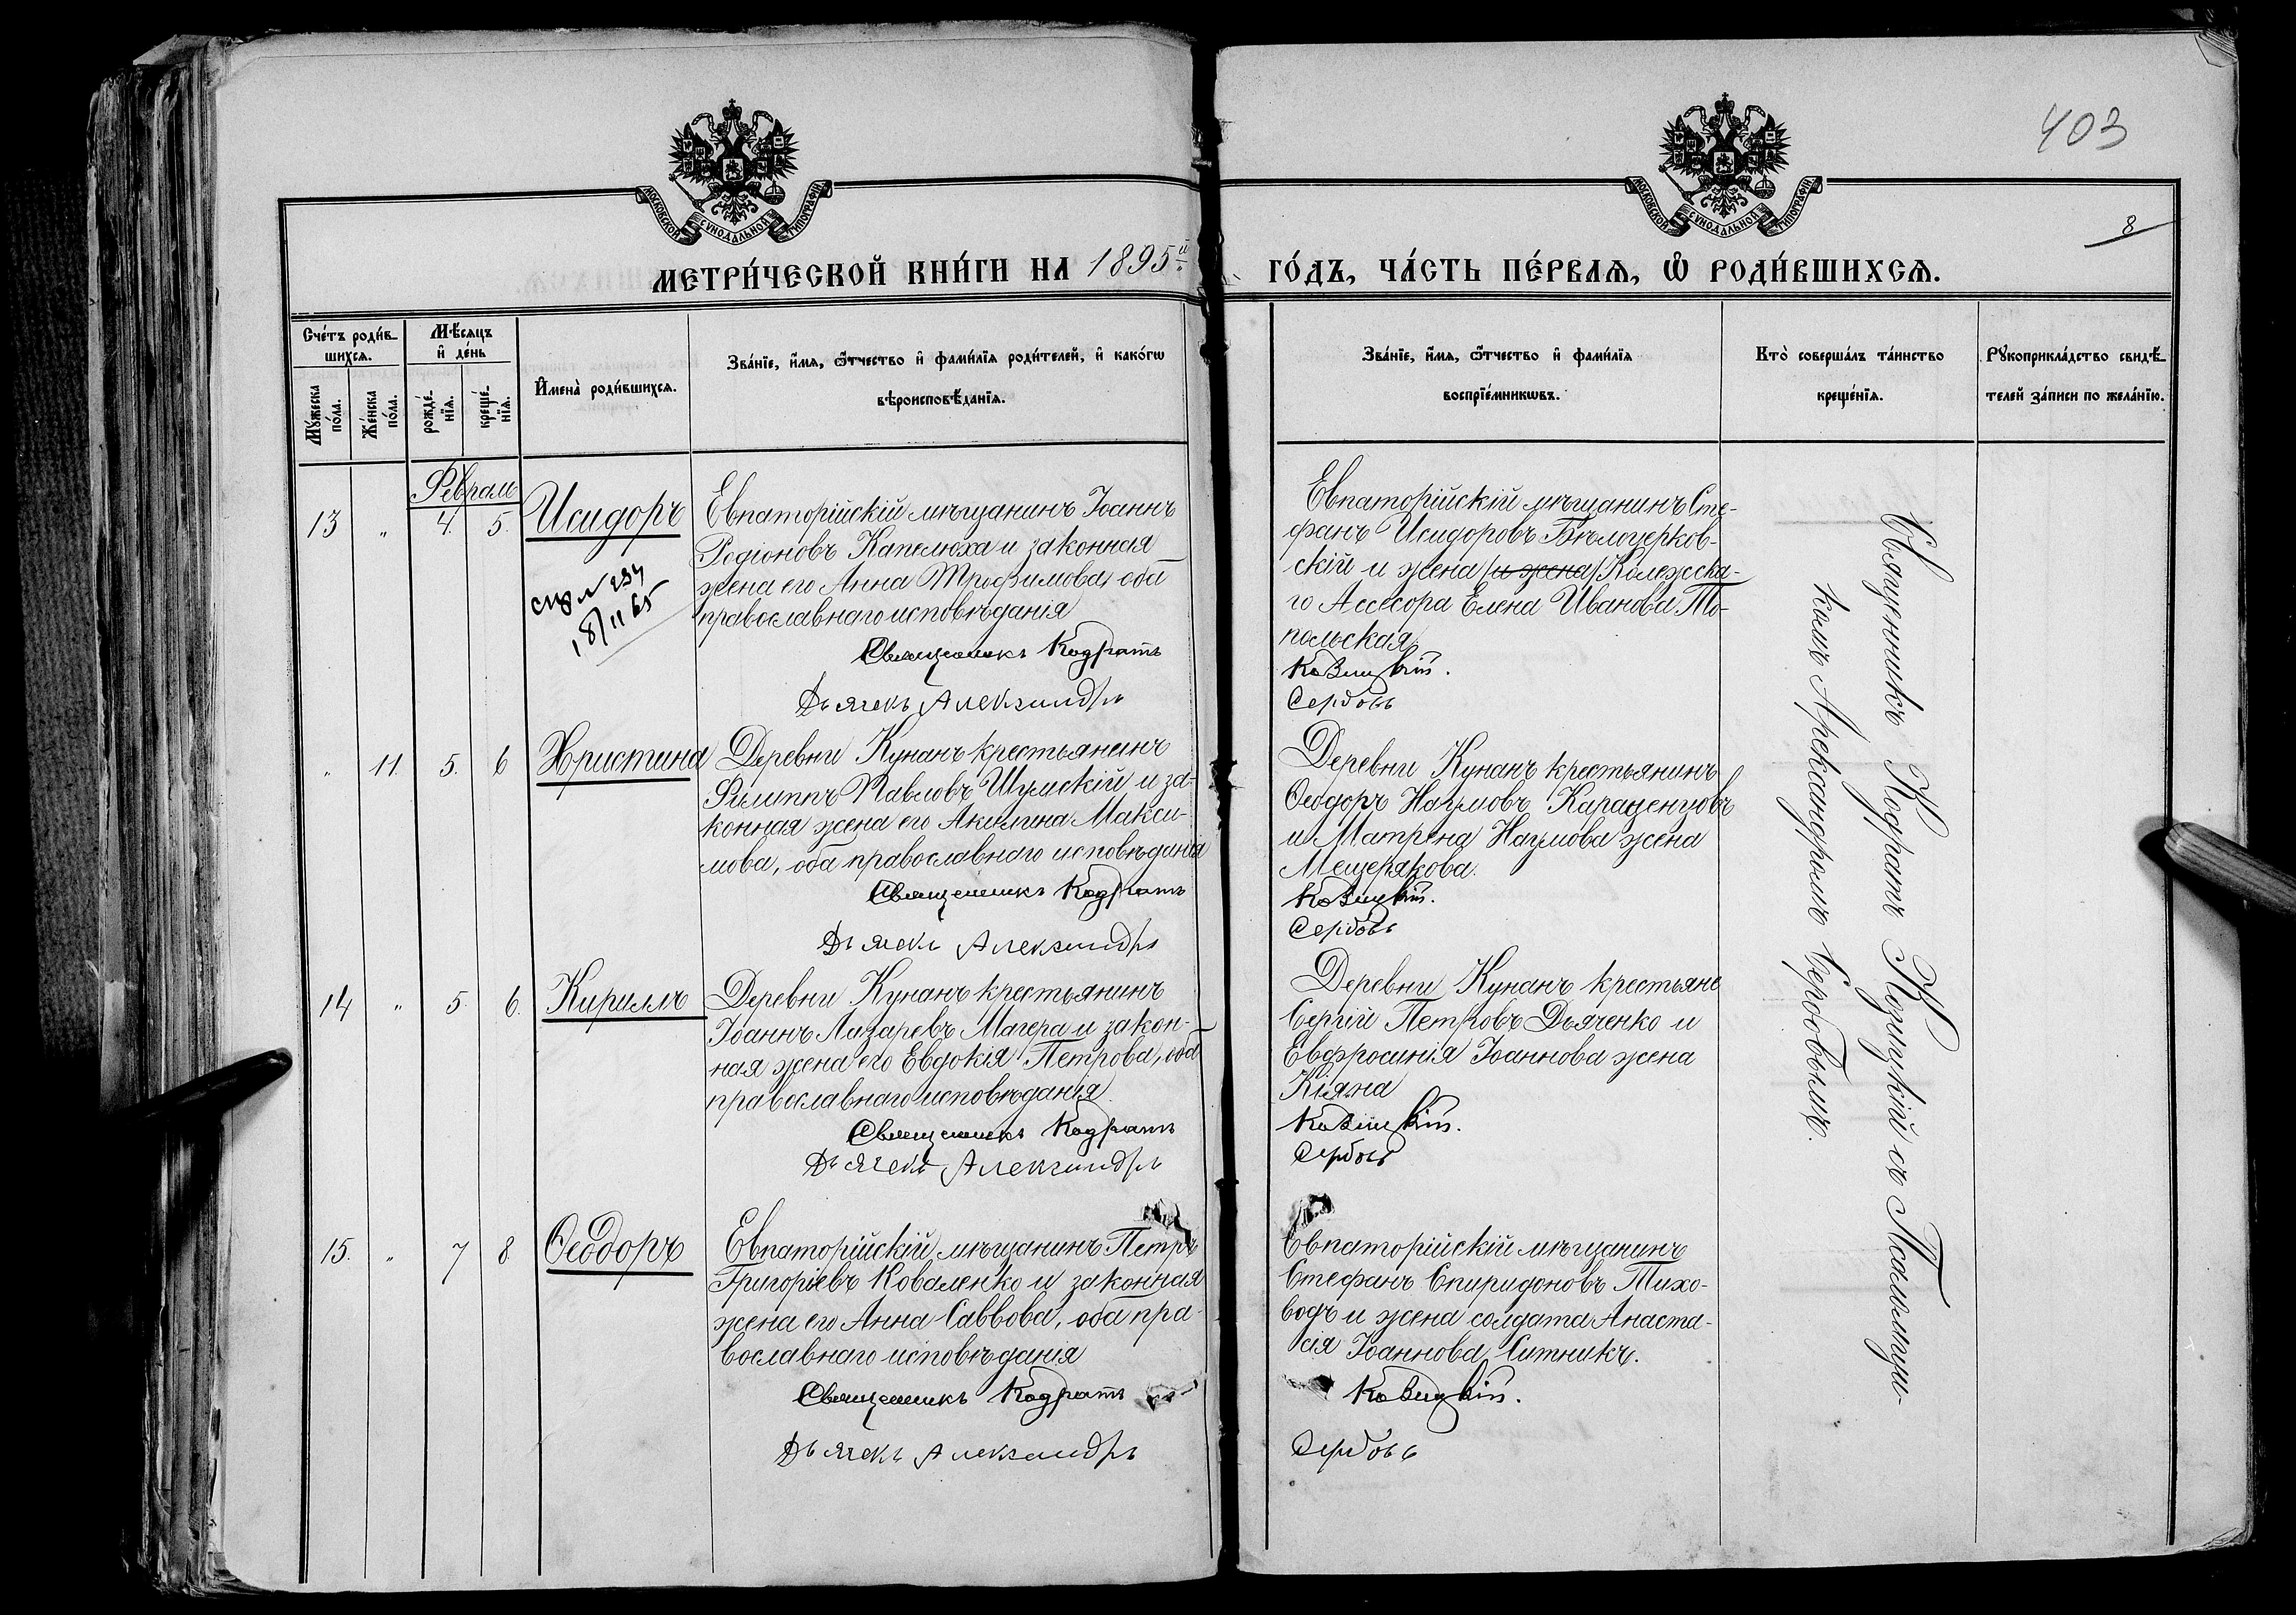 403
8
МОСКОВСКОЙ СѴНОДАЛЬНОЙ ТИПОГРАФІИ
МОСКОВСКОЙ СѴНОДАЛЬНОЙ ТИПОГРАФІИ
МЕТРИ́ЧЕСКОЙ КНИ́ГИ НА 1895й
ГО́ДЪ, ЧА́СТЬ ПЕ́РВАѦ, Ѽ РОДИ́ВШИХСѦ.
Сче́тъ роди́в-
шихсѧ.
Мꙋ́жеска по́ла.
Же́нска по́ла.
Мѣ́сяцъ
и҆ де́нь
рожде́-
нїѧ.
креще́-
нїѧ.
И҆мена̀ роди́вшихсѧ.
Зва́нїе, и҆́мѧ, ѻ҆́тчество и҆ фами́лїѧ роди́телей, и҆ како́гѡ
вѣроисповѣ́данїѧ.
Зва́нїе, и҆́мѧ, ѻ҆́тчество и҆ фами́лїѧ
воспрїе́мникѡвъ.
Кто̀ соверша́лъ та́инство
креще́нїѧ.
Рꙋкоприкла́дство свидѣ́-
телей за́писи по жела́нїю.
Феврал
13 " 4. 5. Исидоръ
Евпаторійскій мѣщанинъ Іоаннъ
Родіоновъ Капелюха и законная
жена его Анна Трофимова, оба
православнаго исповѣданія
18/II 65
Священникъ Кодратъ
Дьячекъ Александръ
Евпаторійскій мѣщанинъ Сте-
фанъ Исидоровъ Бѣлоцерков-
скій и жена /и жена/ Колежска-
го Ассесора Елена Иванова То-
польская
Козицкій.
Сербовъ
" 11. 5. 6 Христина
Деревни Кунанъ крестьянинъ
Филиппъ Павловъ Шумскій и за-
конная жена его Акилина Макси-
мова, оба православнаго исповѣданія
Священникъ Кодратъ
Дьячекъ Александръ
Деревни Кунанъ крестьянинъ
Ѳеодоръ Наумовъ Каращенцовъ
и Матрена Наумова жена
Мещерякова.
Козицкій.
Сербовъ
14 " 5. 6. Кириллъ
Деревни Кунанъ крестьянинъ
Іоаннъ Лазаревъ Магера и закон-
ная жена его Евдокія Петрова, оба
православнаго исповѣданія.
Священникъ Кодратъ
Дьячекъ Александръ
Деревни Кунанъ крестьяне
Сергій Петровъ Дьяченко и
Евфросинія Іоаннова жена
Кіяна
Козицкій.
Сербовъ
15. " 7 8 Ѳеодоръ
Евпаторійскій мѣщанинъ Петръ
Григоріевъ Коваленко и законная
жена его Анна Саввова, оба пра-
вославнаго исповѣданія
Священникъ Кодратъ
Дьячекъ Александръ
Евпаторійскій мѣщанинъ
Стефанъ Спиридоновъ Тихо-
водъ и жена солдата Анаста-
сія Іоаннова Ситникъ.
Козицкій.
Сербовъ
Священникъ Кодратъ Козицкій съ Псаломщи-
комъ Александромъ Сербовымъ.